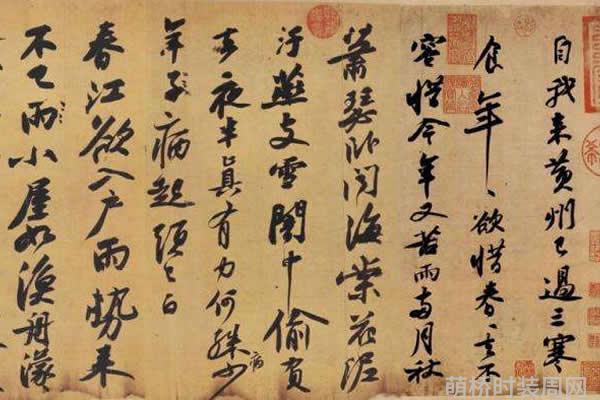 自我來黃州已過三寒
食年〻欲惜春〻去不
容惜今年又苦雨兩月秋
蕭瑟卧聞海棠花泥
汙燕支雪闇中偷負
去夜半真有力何殊少病
年子病起頭已白
春江欲入戶雨勢來
不已雨小屋如漁舟濛
萌桥时装周网